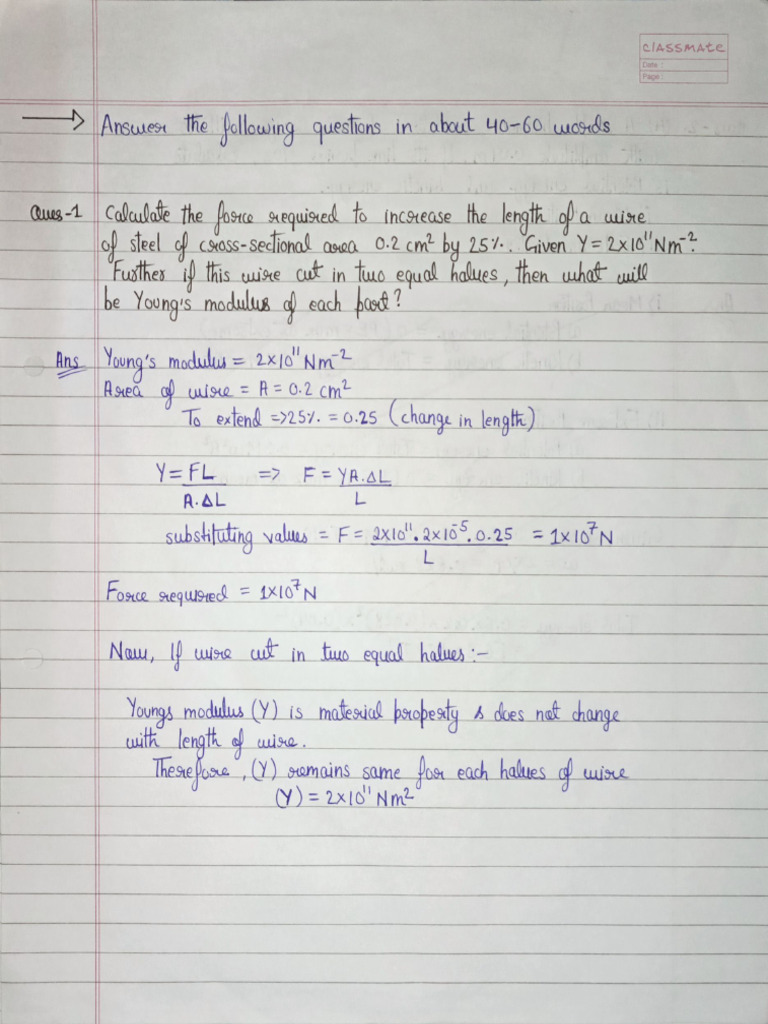 classmate
Date :
Page :
→ Answer the following questions in about 40-60 words
Ques-1 Calculate the force required to increase the length of a wire
of steel of cross-sectional area 0.2 cm² by 25%. Given Y = 2×10¹¹ Nm⁻².
Further if this wire cut in two equal halves, then what will
be Young's modulus of each part?
Ans Young's modulus = 2×10¹¹ Nm⁻²
Area of wire = A = 0.2 cm²
To extend => 25% = 0.25 (change in length)
Y = FL => F = YA.ΔL
A.ΔL L
substituting values = F = 2×10¹¹ . 2×10⁻⁵ . 0.25 = 1×10⁷ N
L
Force required = 1×10⁷ N
Now, If wire cut in two equal halves :-
Youngs modulus (Y) is material property & does not change
with length of wire.
Therefore, (Y) remains same for each halves of wire
(Y) = 2×10¹¹ Nm²